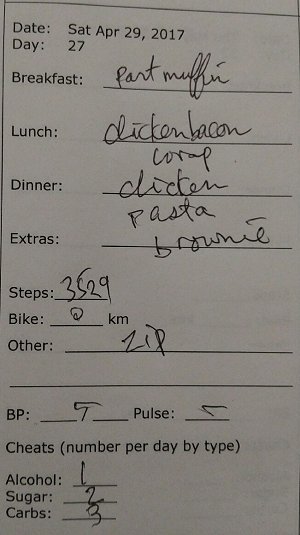 Date: Sat Apr 29, 2017
Day: 27
Breakfast: part muffin
Lunch: chicken bacon
wrap
Dinner: chicken
pasta
Extras: brownie
Steps: 3529
Bike: 0 km
Other: zip
BP: Pulse:
Cheats (number per day by type)
Alcohol: 1
Sugar: 2
Carbs: 3